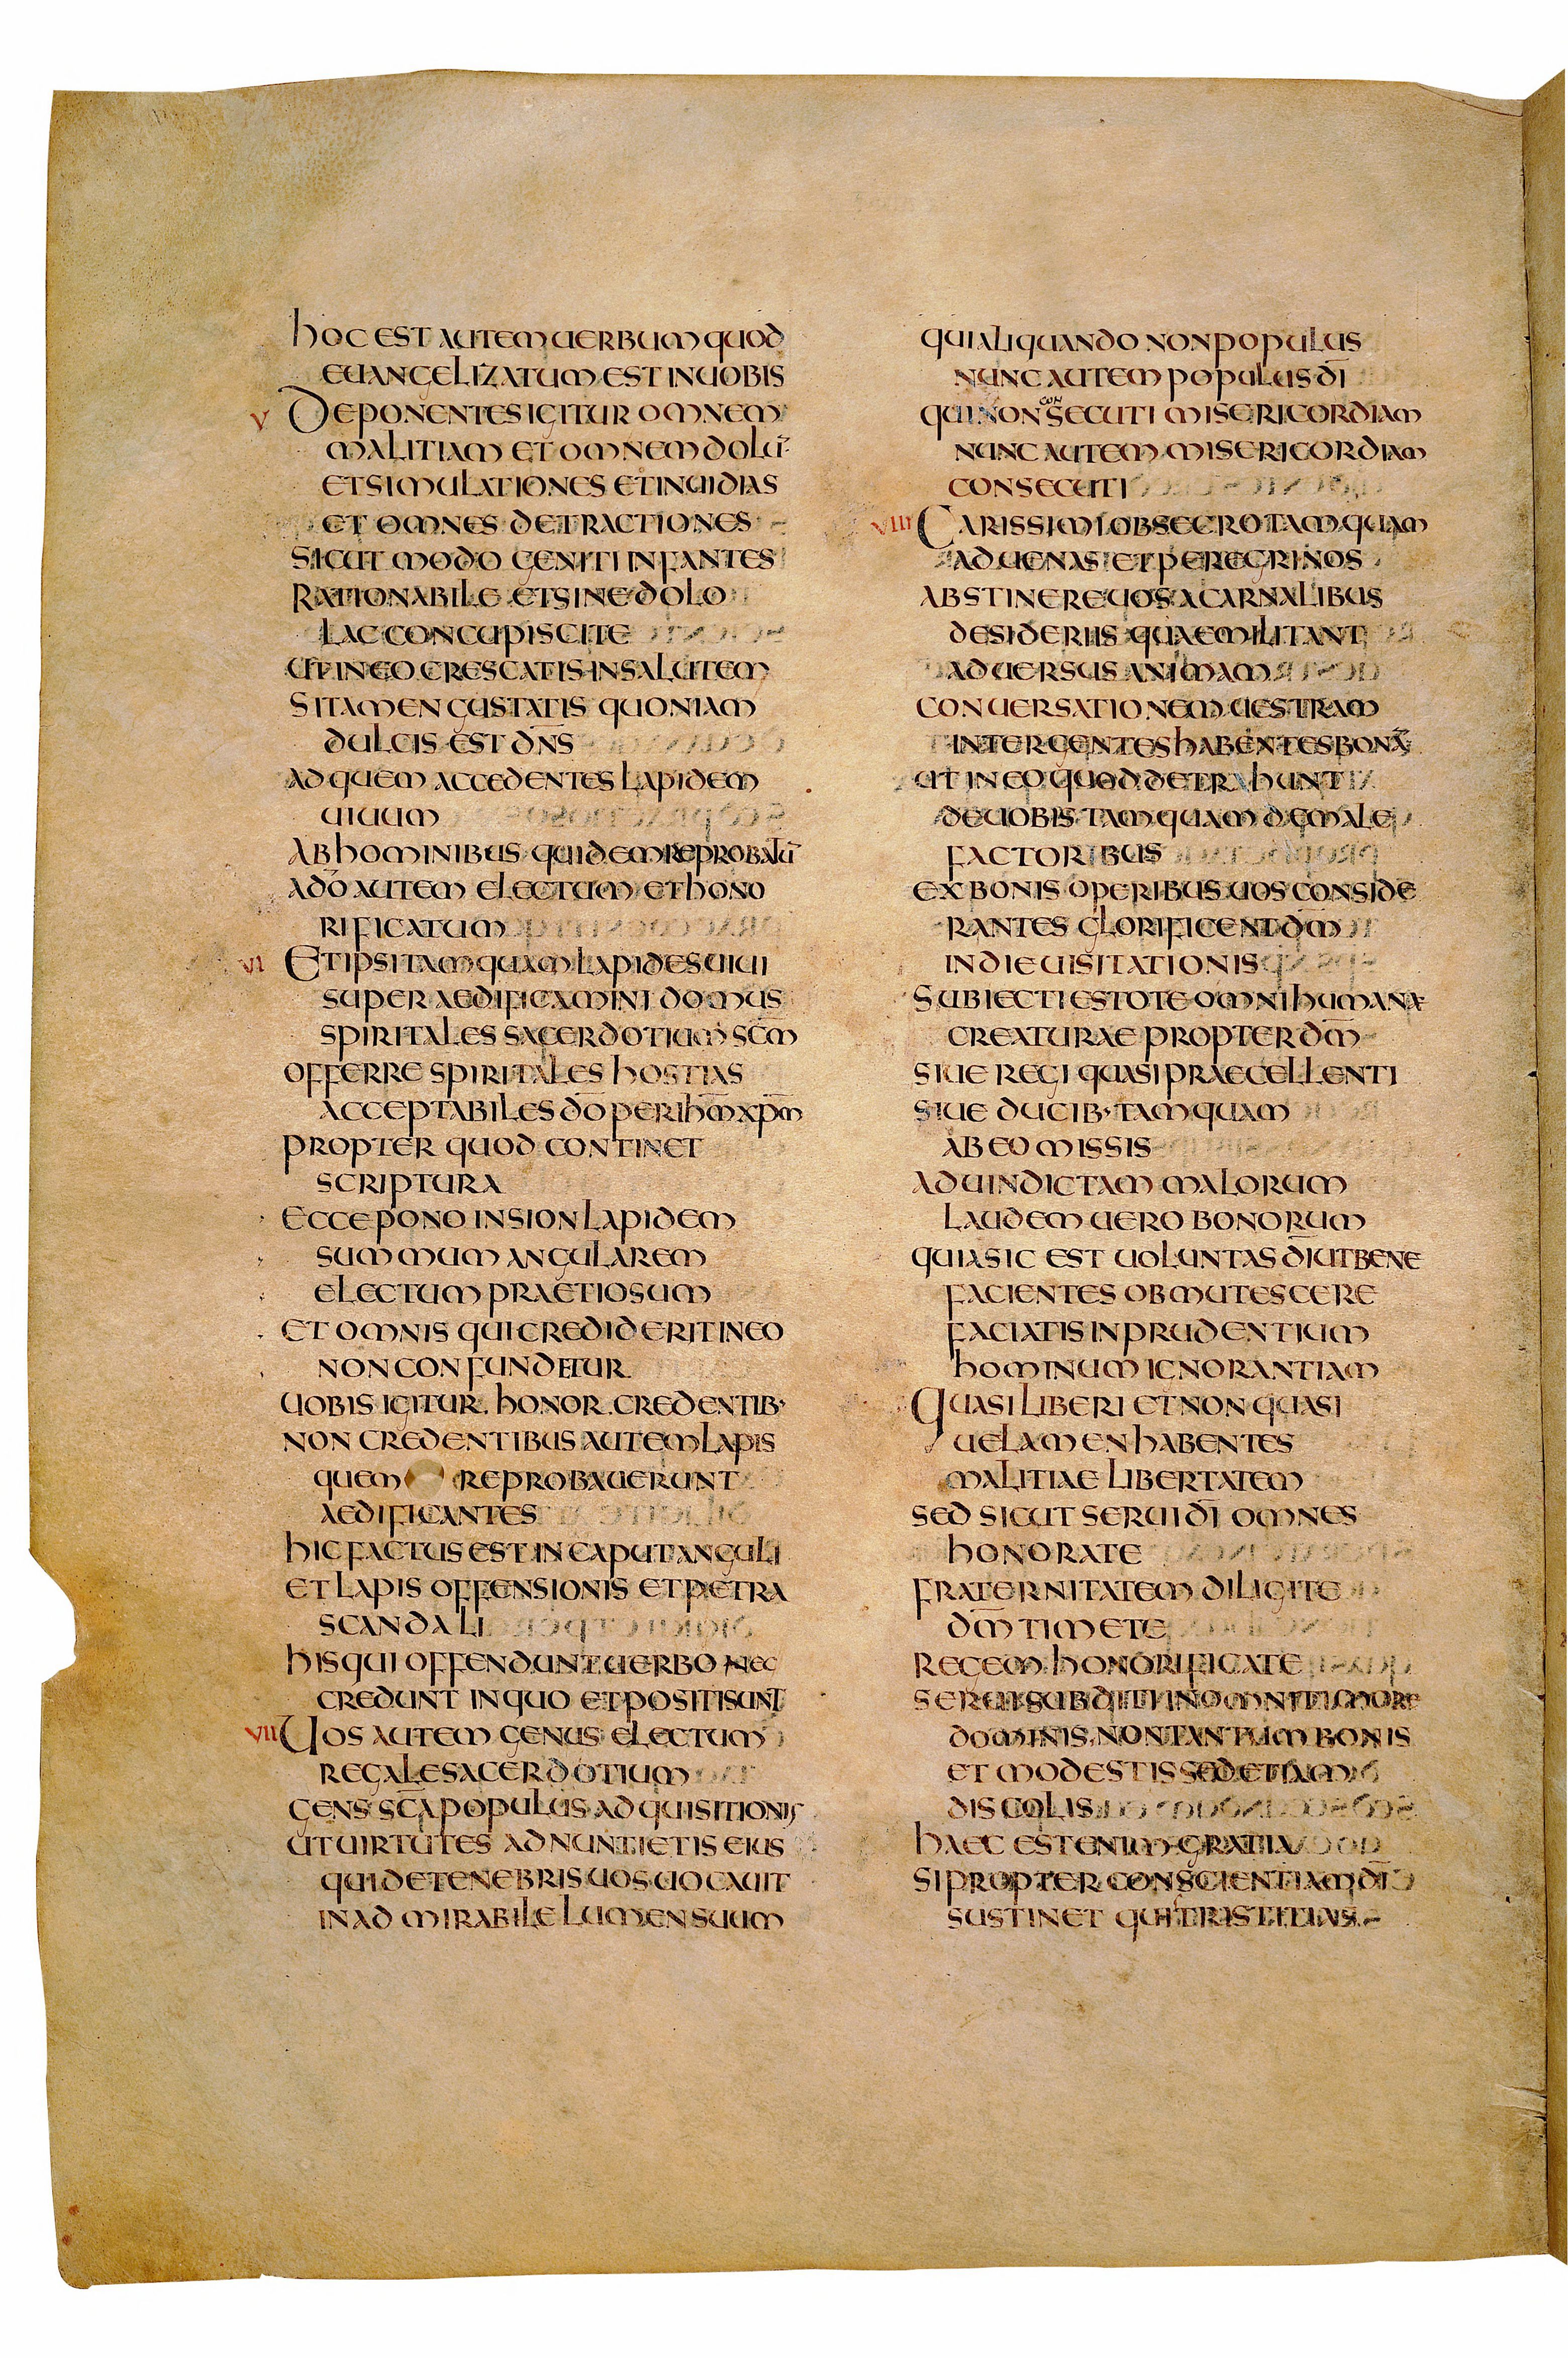 hoc est autem uerbum quod
euangelizatum est in uobis
V Deponentes igitur omnem
malitiam et omnem dolū
et simulationes et inuidias
et omnes detractiones
sicut modo geniti infantes
rationabile et sine dolo
lac concupiscite
ut in eo crescatis in salutem
si tamen gustatis quoniam
dulcis est dn̄s
ad quem accedentes lapidem
uiuum
ab hominibus quidem reprobatū
a dō autem electum et hono
rificatum
VI Et ipsi tamquam lapides uiui
super aedificamini domus
spiritales sacerdotium sc̄m
offerre spiritales hostias
acceptabiles dō per ih̄m xp̄m
propter quod continet
scriptura
ecce pono in sion lapidem
summum angularem
electum praetiosum
et omnis qui crediderit in eo
non confundetur
uobis igitur honor credentib·
non credentibus autem lapis
quem reprobauerunt
aedificantes
hic factus est in caput anguli
et lapis offensionis et petra
scandali
his qui offendunt uerbo nec
credunt in quo et positi sunt
VII Uos autem genus electum
regale sacerdotium
gens sc̄a populus adquisitionis
ut uirtutes adnuntietis eius
qui de tenebris uos uocauit
in admirabile lumen suum
qui aliquando non populus
nunc autem populus dī
qui non con secuti misericordiam
nunc autem misericordiam
consecuti
VIII Carissimi obsecro tamquam
aduenas et peregrinos
abstinere uos a carnalibus
desideriis quae militant
aduersus animam
conuersationem uestram
inter gentes habentes bonā
ut in eo quod detrahunt
de uobis tamquam de male
factoribus
ex bonis operibus uos conside
rantes glorificent dm̄
in die uisitationis
Subiecti estote omni humanae
creaturae propter dm̄
siue regi quasi praecellenti
siue ducib· tamquam
ab eo missis
ad uindictam malorum
laudem uero bonorum
quia sic est uoluntas dī ut bene
facientes obmutescere
faciatis inprudentium
hominum ignorantiam
Quasi liberi et non quasi
uelamen habentes
malitiae libertatem
sed sicut serui dī omnes
honorate
fraternitatem diligite
dm̄ timete
regem honorificate
serui subditi in omni timore
dominis non tantum bonis
et modestis sed etiam
discolis
haec est enim gratia
si propter conscientiam dī
sustinet qui tristitias